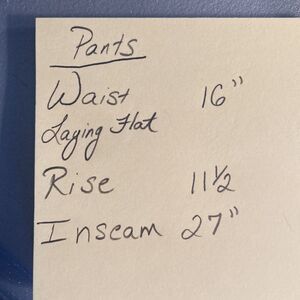 Pants
Waist 16"
Laying Flat
Rise 11½
Inseam 27"